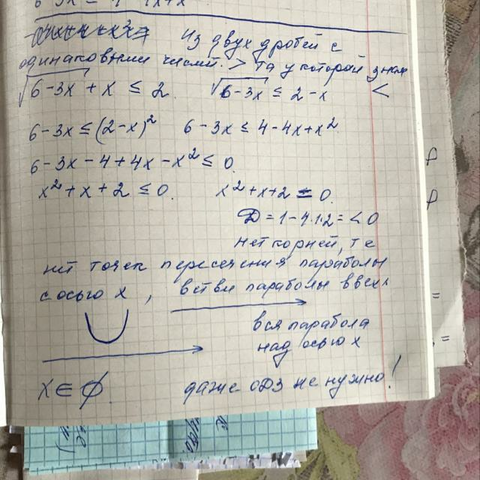 Из двух дробей с
одинаковыми числит. > та у которой знам
<
√6-3x + x ≤ 2 √6-3x ≤ 2-x
6-3x ≤ (2-x)² 6-3x ≤ 4-4x+x²
6-3x-4+4x-x² ≤ 0
x²+x+2 ≤ 0. x²+x+2 = 0
D=1-4·1·2=<0
нет корней, т.е
нит точек пересечения параболы
с осью x, ветви параболы вверх
вся парабола
над осью x
x∈∅ даже ОДЗ не нужно!